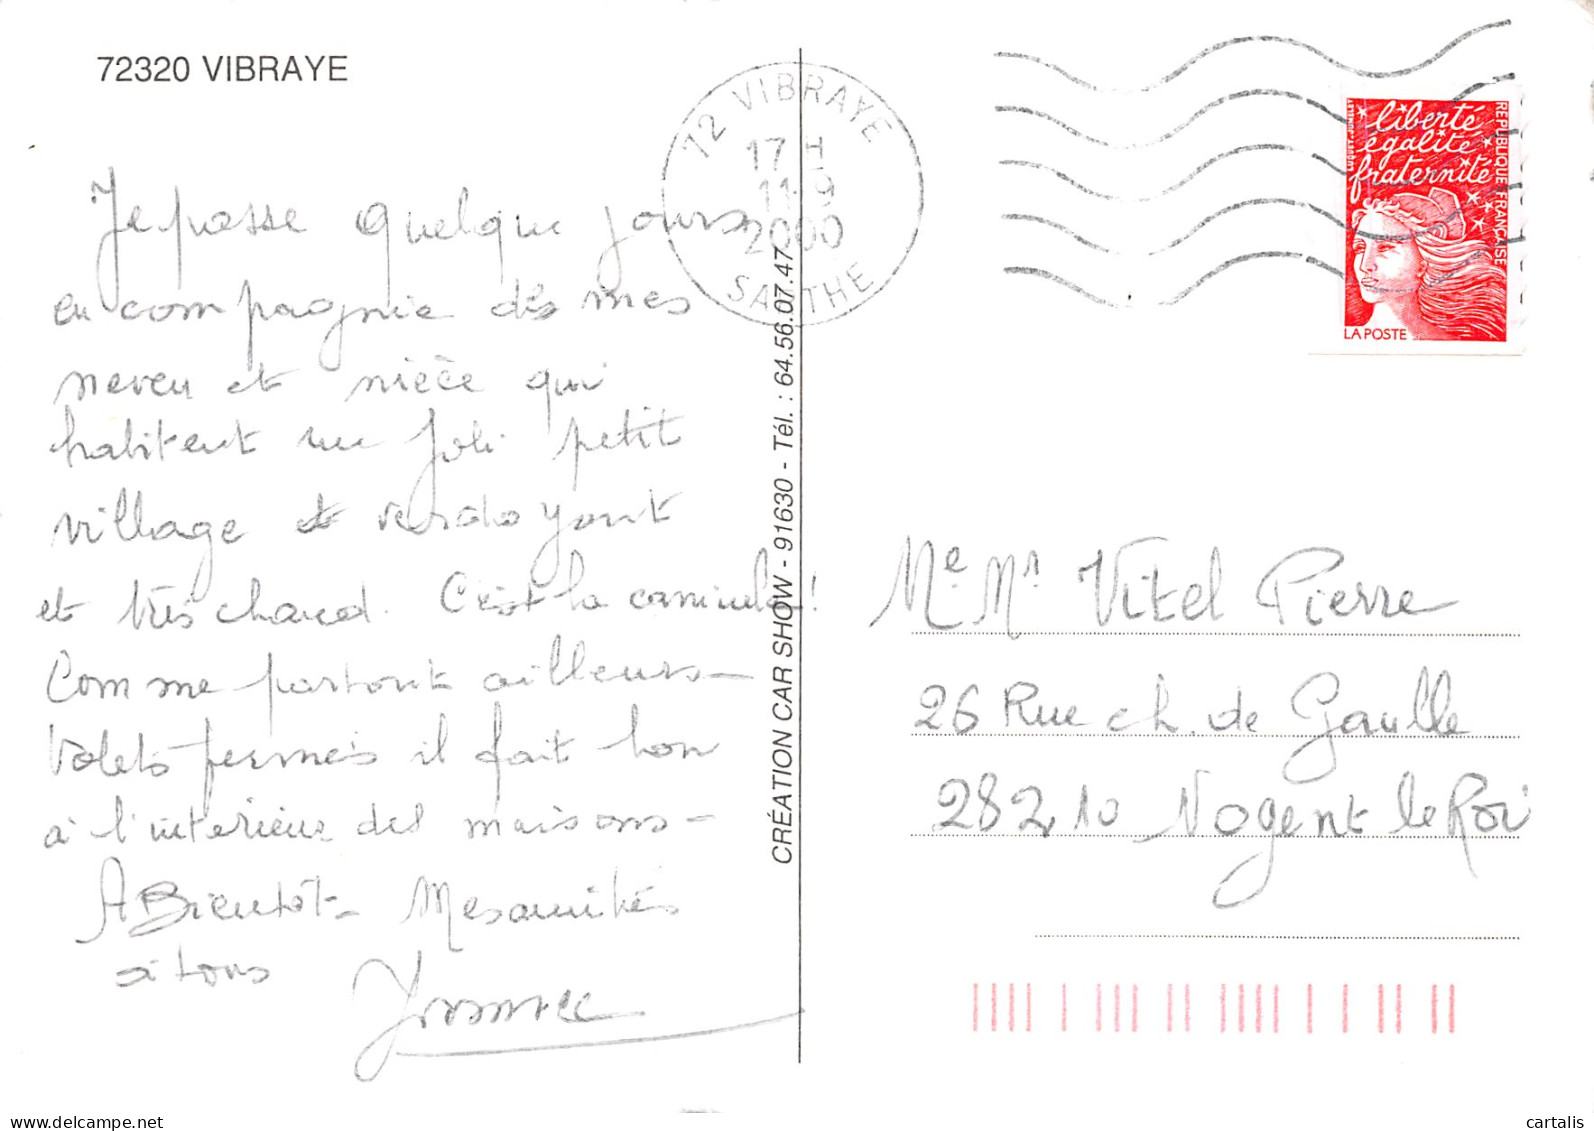 72320 VIBRAYE
Je passe quelque jours
en compagnie dés mes
neveu et nièce qui
habitent un joli petit
village et verdoyant
et très chaud. C'est la canicule !
Comme partout ailleurs -
Volets fermés il fait bon
à l'intérieur des maisons -
A Bientôt - Mes amitiés
à tous
Yvonne
CRÉATION CAR SHOW - 91630 - Tél. : 64.56.07.47
72 VIBRAYE
17 H
11-9
2000
SARTHE
liberté
égalité
fraternité
REPUBLIQUE FRANÇAISE
LUQUET-JUMELET
LA POSTE
Me. Mr Vitel Pierre
26 Rue ch. de Gaulle
28210 Nogent le Roi
delcampe.net
cartalis